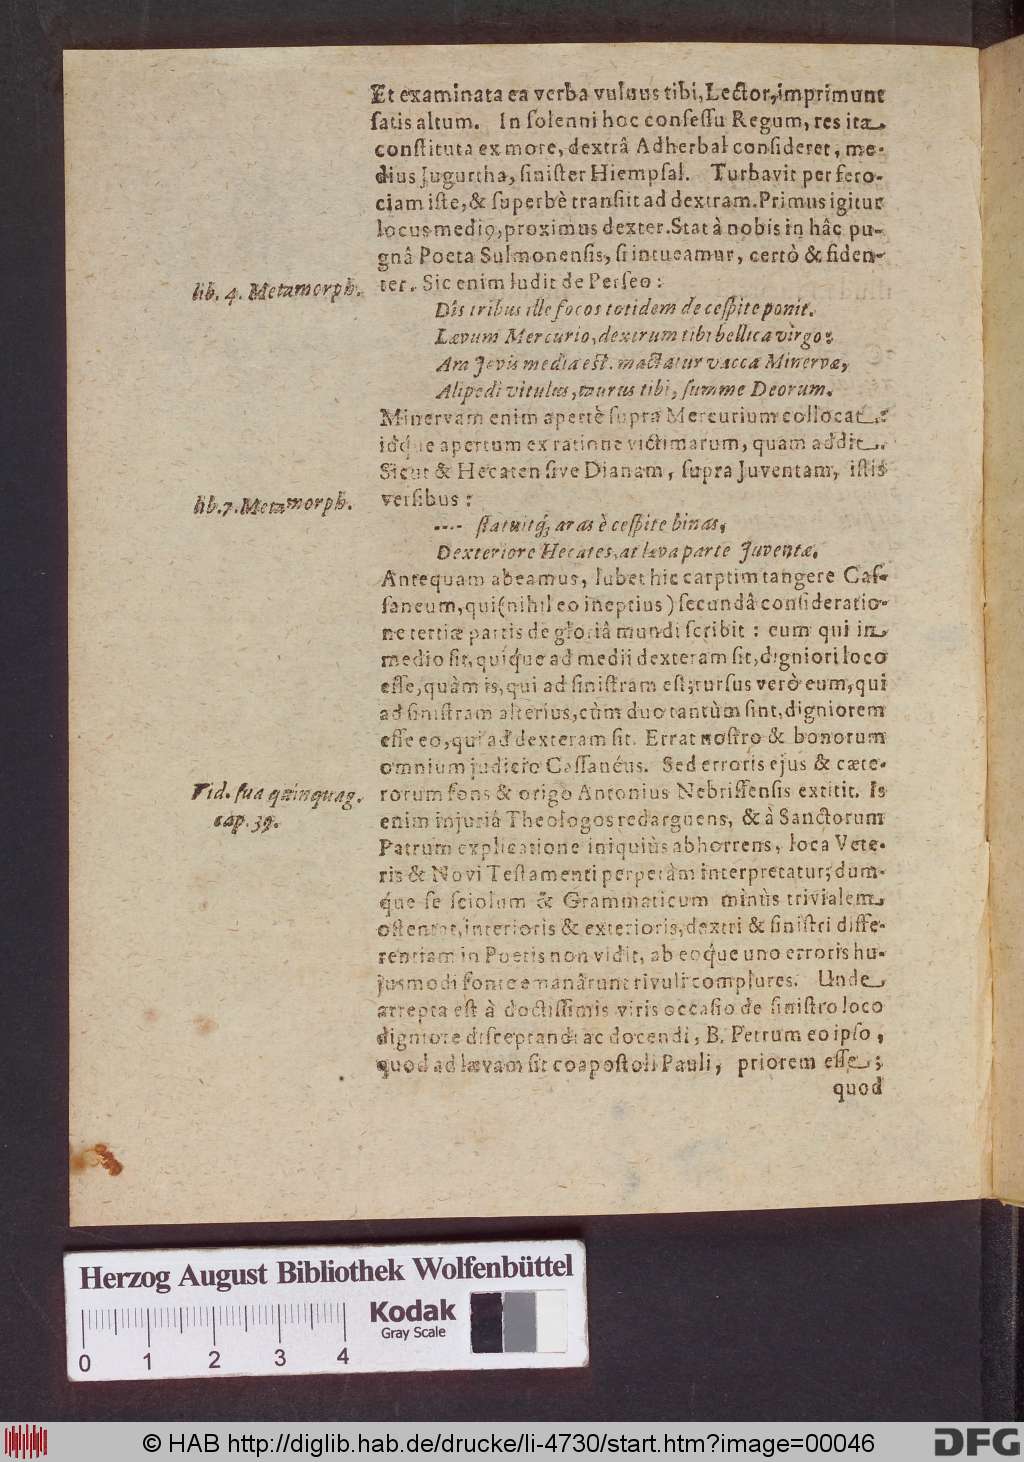 Et examinata ea verba vulnus tibi, Lector, imprimunt
ſatis altum. In ſolenni hoc conſeſſu Regum, res ita
conſtituta ex more, dextrâ Adherbal conſideret, me-
dius Jugurtha, ſiniſter Hiempſal. Turbavit per fero-
ciam iſte, & ſuperbè tranſiit ad dextram. Primus igitur
locus medio, proximus dexter. Stat à nobis in hâc pu-
gnâ Poeta Sulmonenſis, ſi intueamur, certò & fiden-
lib. 4. Metamorph.
ter. Sic enim ludit de Perſeo:
Dîs tribus ille focos totidem de ceſpite ponit.
Lævum Mercurio, dextrum tibi bellica virgo:
Ara Jovis media eſt. mactatur vacca Minervæ,
Alipedi vitulus, taurus tibi, ſumme Deorum.
Minervam enim apertè ſupra Mercurium collocat:
idque apertum ex ratione victimarum, quam addit.
Sicut & Hecaten ſive Dianam, ſupra Juventam, iſtis
lib. 7. Metamorph.
verſibus:
---- ſtatuitq́; aras è ceſpite binas,
Dexteriore Hecates, at læva parte Juventæ.
Antequam abeamus, lubet hic carptim tangere Caſ-
ſaneum, qui (nihil eo ineptius) ſecundâ conſideratio-
ne tertiæ partis de gloriâ mundi ſcribit: eum qui in
medio ſit, quíque ad medii dexteram ſit, digniori loco
eſſe, quàm is, qui ad ſiniſtram eſt; rurſus verò eum, qui
ad ſiniſtram alterius, cùm duo tantùm ſint, digniorem
eſſe eo, qui ad dexteram ſit. Errat noſtro & bonorum
omnium judicio Caſſanéus. Sed erroris ejus & cæte-
Vid. ſua quinquag.
cap. 39.
rorum fons & origo Antonius Nebriſſenſis extitit. Is
enim injuriâ Theologos redarguens, & à Sanctorum
Patrum explicatione iniquiùs abhorrens, loca Vete-
ris & Novi Teſtamenti perperàm interpretatur; dum-
q́ue ſe ſciolum & Grammaticum minùs trivialem
oſtentat, interioris & exterioris, dextri & ſiniſtri diffe-
rentiam in Poetis non vidit, ab eoq́ue uno erroris hu-
jusmodi fonte emanârunt rivuli complures. Unde
arrepta eſt à doctiſſimis viris occaſio de ſiniſtro loco
digniore diſceptandi ac docendi, B. Petrum eo ipſo,
quod ad lævam ſit coapoſtoli Pauli, priorem eſſe;
quod
Herzog August Bibliothek Wolfenbüttel
0 1 2 3 4
Kodak
Gray Scale
© HAB http://diglib.hab.de/drucke/li-4730/start.htm?image=00046
DFG